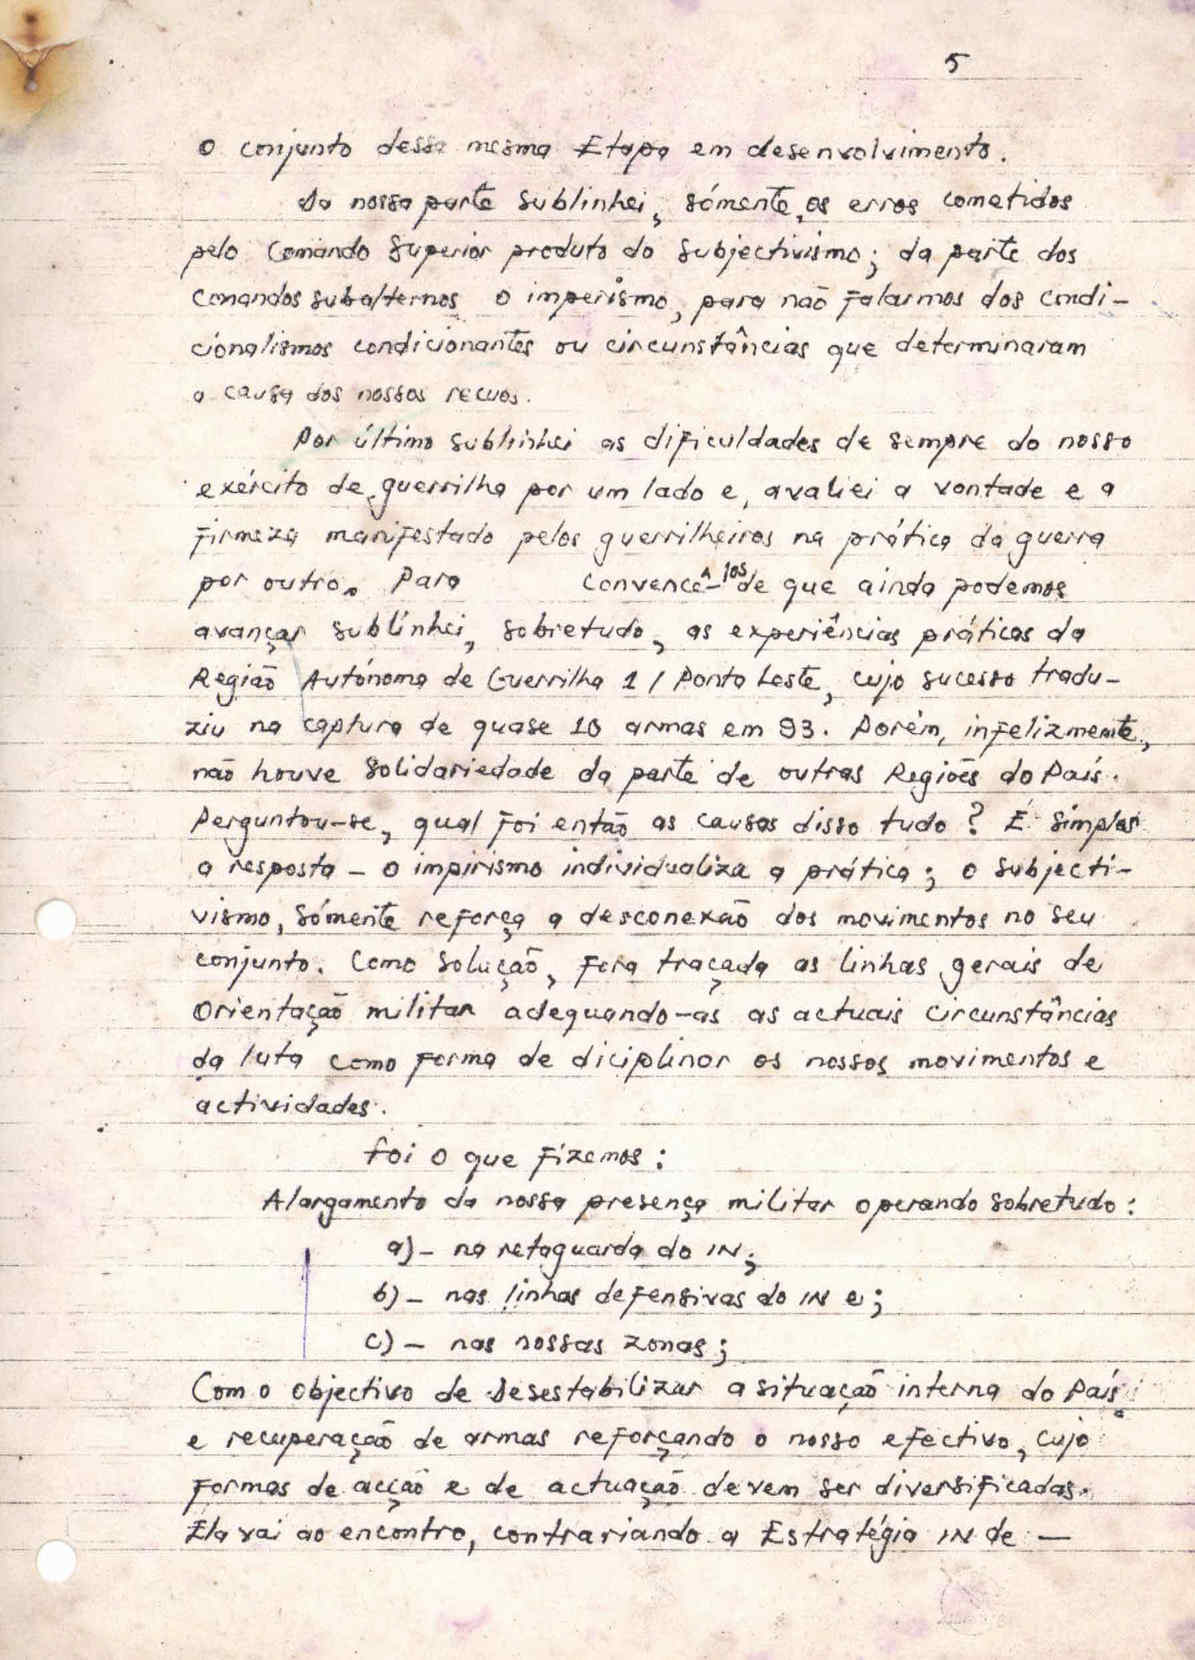 5
O conjunto dessa mesma Etapa em desenvolvimento.
Da nossa parte sublinhei, sómente, os erros cometidos
pelo Comando Superior produto do subjectivismo; da parte dos
comandos subalternos o imperismo, para não falarmos dos condi-
cionalismos condicionantes ou circunstâncias que determinaram
a causa dos nossos recuos.
Por último sublinhei as dificuldades de sempre do nosso
exército de guerrilha por um lado e, avaliei a vontade e a
firmeza manifestado pelos guerrilheiros na prática da guerra
por outro. Para convencê-los de que ainda podemos
avançar sublínhei, sobretudo, as experiências práticas da
Região Autónoma de Guerrilha 1 / Ponto Leste, cujo sucesso tradu-
ziu na captura de quase 10 armas em 93. Porém, infelizmente,
não houve solidariedade da parte de outras Regiões do País.
Perguntou-se, qual foi então as causas disso tudo? É simples
a resposta - o impirismo individualiza a prática; o subjecti-
vismo, sómente reforça a desconexão dos movimentos no seu
conjunto. Como solução, fora traçada as linhas gerais de
Orientação militar adequando-as as actuais circunstâncias
da luta como forma de diciplinar os nossos movimentos e
actividades.
Foi o que fizemos:
Alargamento da nossa presença militar operando sobretudo:
a) - na retaguarda do IN;
b) - nas linhas defensivas do IN e;
c) - nas nossas zonas;
Com o objectivo de Desestabilizar a situação interna do País
e recuperação de armas reforçando o nosso efectivo, cujo
formas de acção e de actuação devem ser diversificadas.
Ela vai ao encontro, contrariando a Estratégia IN de —